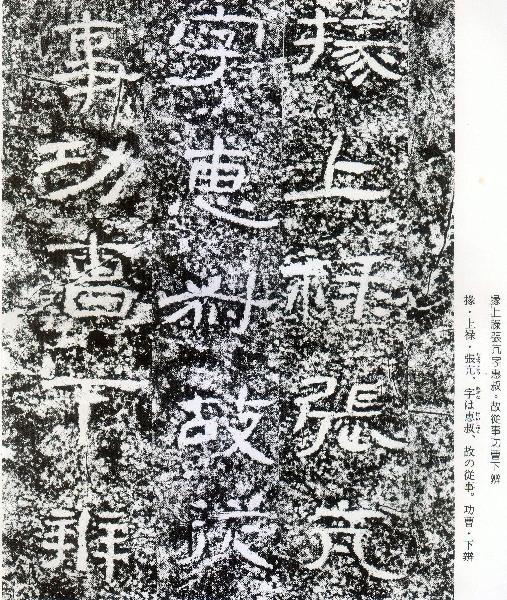 掾上祿張亢
字惠叔故從
事功曹下辨
掾上祿張亢字惠叔。故從事功曹下辨
掾・上禄・張亢、字は恵叔、故の従事。功曹・下辨